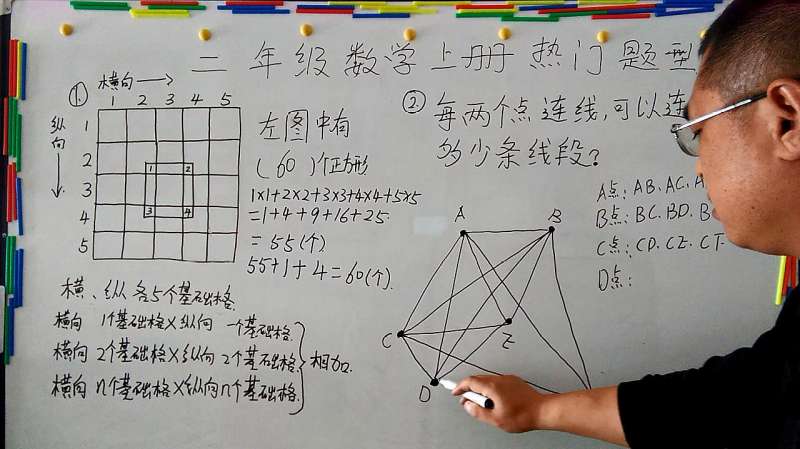 二年级数学上册热门题型
① 横向
1 2 3 4 5
纵向
1
2
3
4
5
1 2
3 4
左图中有
(60)个正方形
1×1+2×2+3×3+4×4+5×5
=1+4+9+16+25
=55(个)
55+1+4=60(个).
横、纵各5个基础格.
横向 1个基础格×纵向 一个基础格.
横向 2个基础格×纵向 2个基础格.
横向 n个基础格×纵向n个基础格.
相加.
② 每两个点连线,可以连
的少条线段?
A点: AB. AC. A
B点: BC. BD. B
C点: CD. CZ. CT.
D点:
A
B
C
Z
D